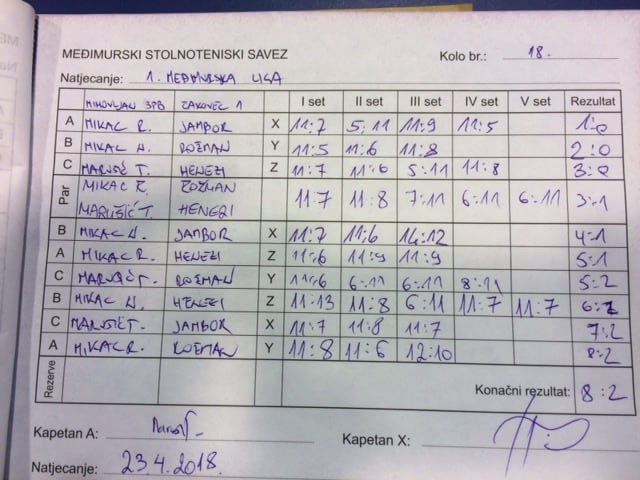 MEĐIMURSKI STOLNOTENISKI SAVEZ
Kolo br.: 18.
Natjecanje: 1. MEĐIMURSKA LIGA
MIHOVLJAN SPB ČAKOVEC 1 I set II set III set IV set V set Rezultat
A MIKAC R. JAMBOR X 11:7 5:11 11:9 11:5 1:0
B MIKAC N. ROŽMAN Y 11:5 11:6 11:8 2:0
C MARUŠIĆ T. HENEZI Z 11:7 11:6 5:11 11:8 3:0
Par MIKAC R. ROŽMAN
MARUŠIĆ T. HENEZI 11:7 11:8 7:11 6:11 6:11 3:1
B MIKAC N. JAMBOR X 11:7 11:6 14:12 4:1
A MIKAC R. HENEZI Z 11:6 11:9 11:9 5:1
C MARUŠIĆ T. ROŽMAN Y 11:6 6:11 6:11 8:11 5:2
B MIKAC N. HENEZI Z 11:13 11:8 6:11 11:7 11:7 6:2
C MARUŠIĆ T. JAMBOR X 11:7 11:8 11:7 7:2
A MIKAC R. ROŽMAN Y 11:8 11:6 12:10 8:2
Rezerve Konačni rezultat: 8:2
Kapetan A:
Kapetan X:
Natjecanje: 23.4.2018.